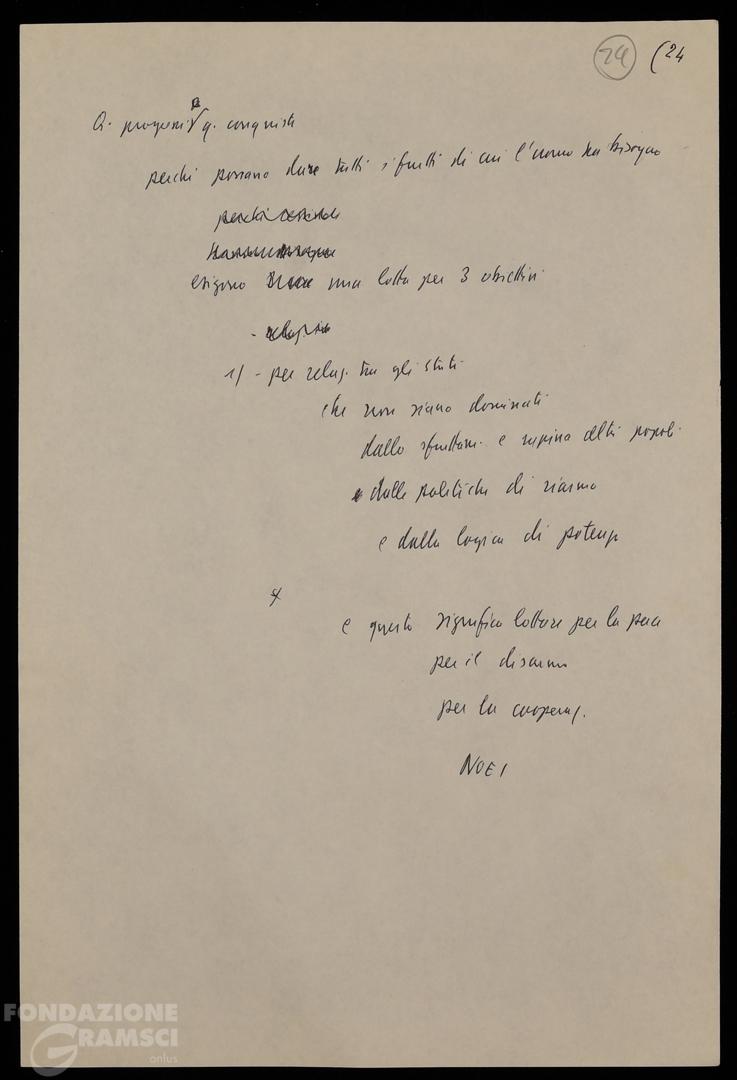 24 (24
Q. progressi e q. conquiste
perché possano dare tutti i frutti di cui l'uomo ha bisogno
perché
esigono una lotta per 3 obiettivi
- relaz.
1) - per relaz. tra gli stati
che non siano dominati
dallo sfruttam. e rapina altri popoli
dalle politiche di riarmo
e dalla logica di potenza
e questo significa lottare per la pace
per il disarmo
per la cooperaz.
NOEI
FONDAZIONE
GRAMSCI
onlus